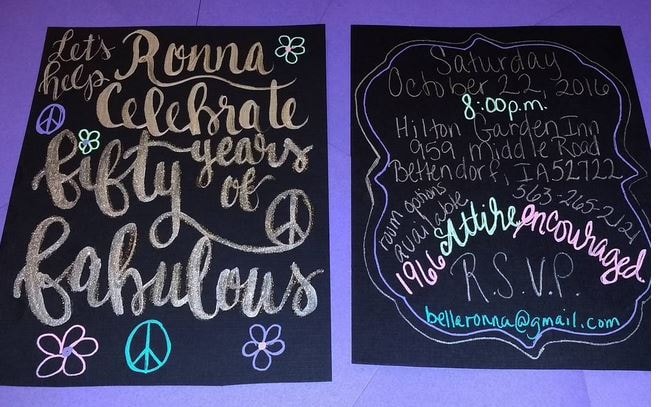 Let's
help Ronna
Celebrate
fifty years
of
fabulous
Saturday
October 22, 2016
8:00p.m.
Hilton Garden Inn
959 Middle Road
Bettendorf, IA 52722
563-265-2121
room options
available
1966 Attire encouraged.
R.S.V.P.
bellaronna@gmail.com